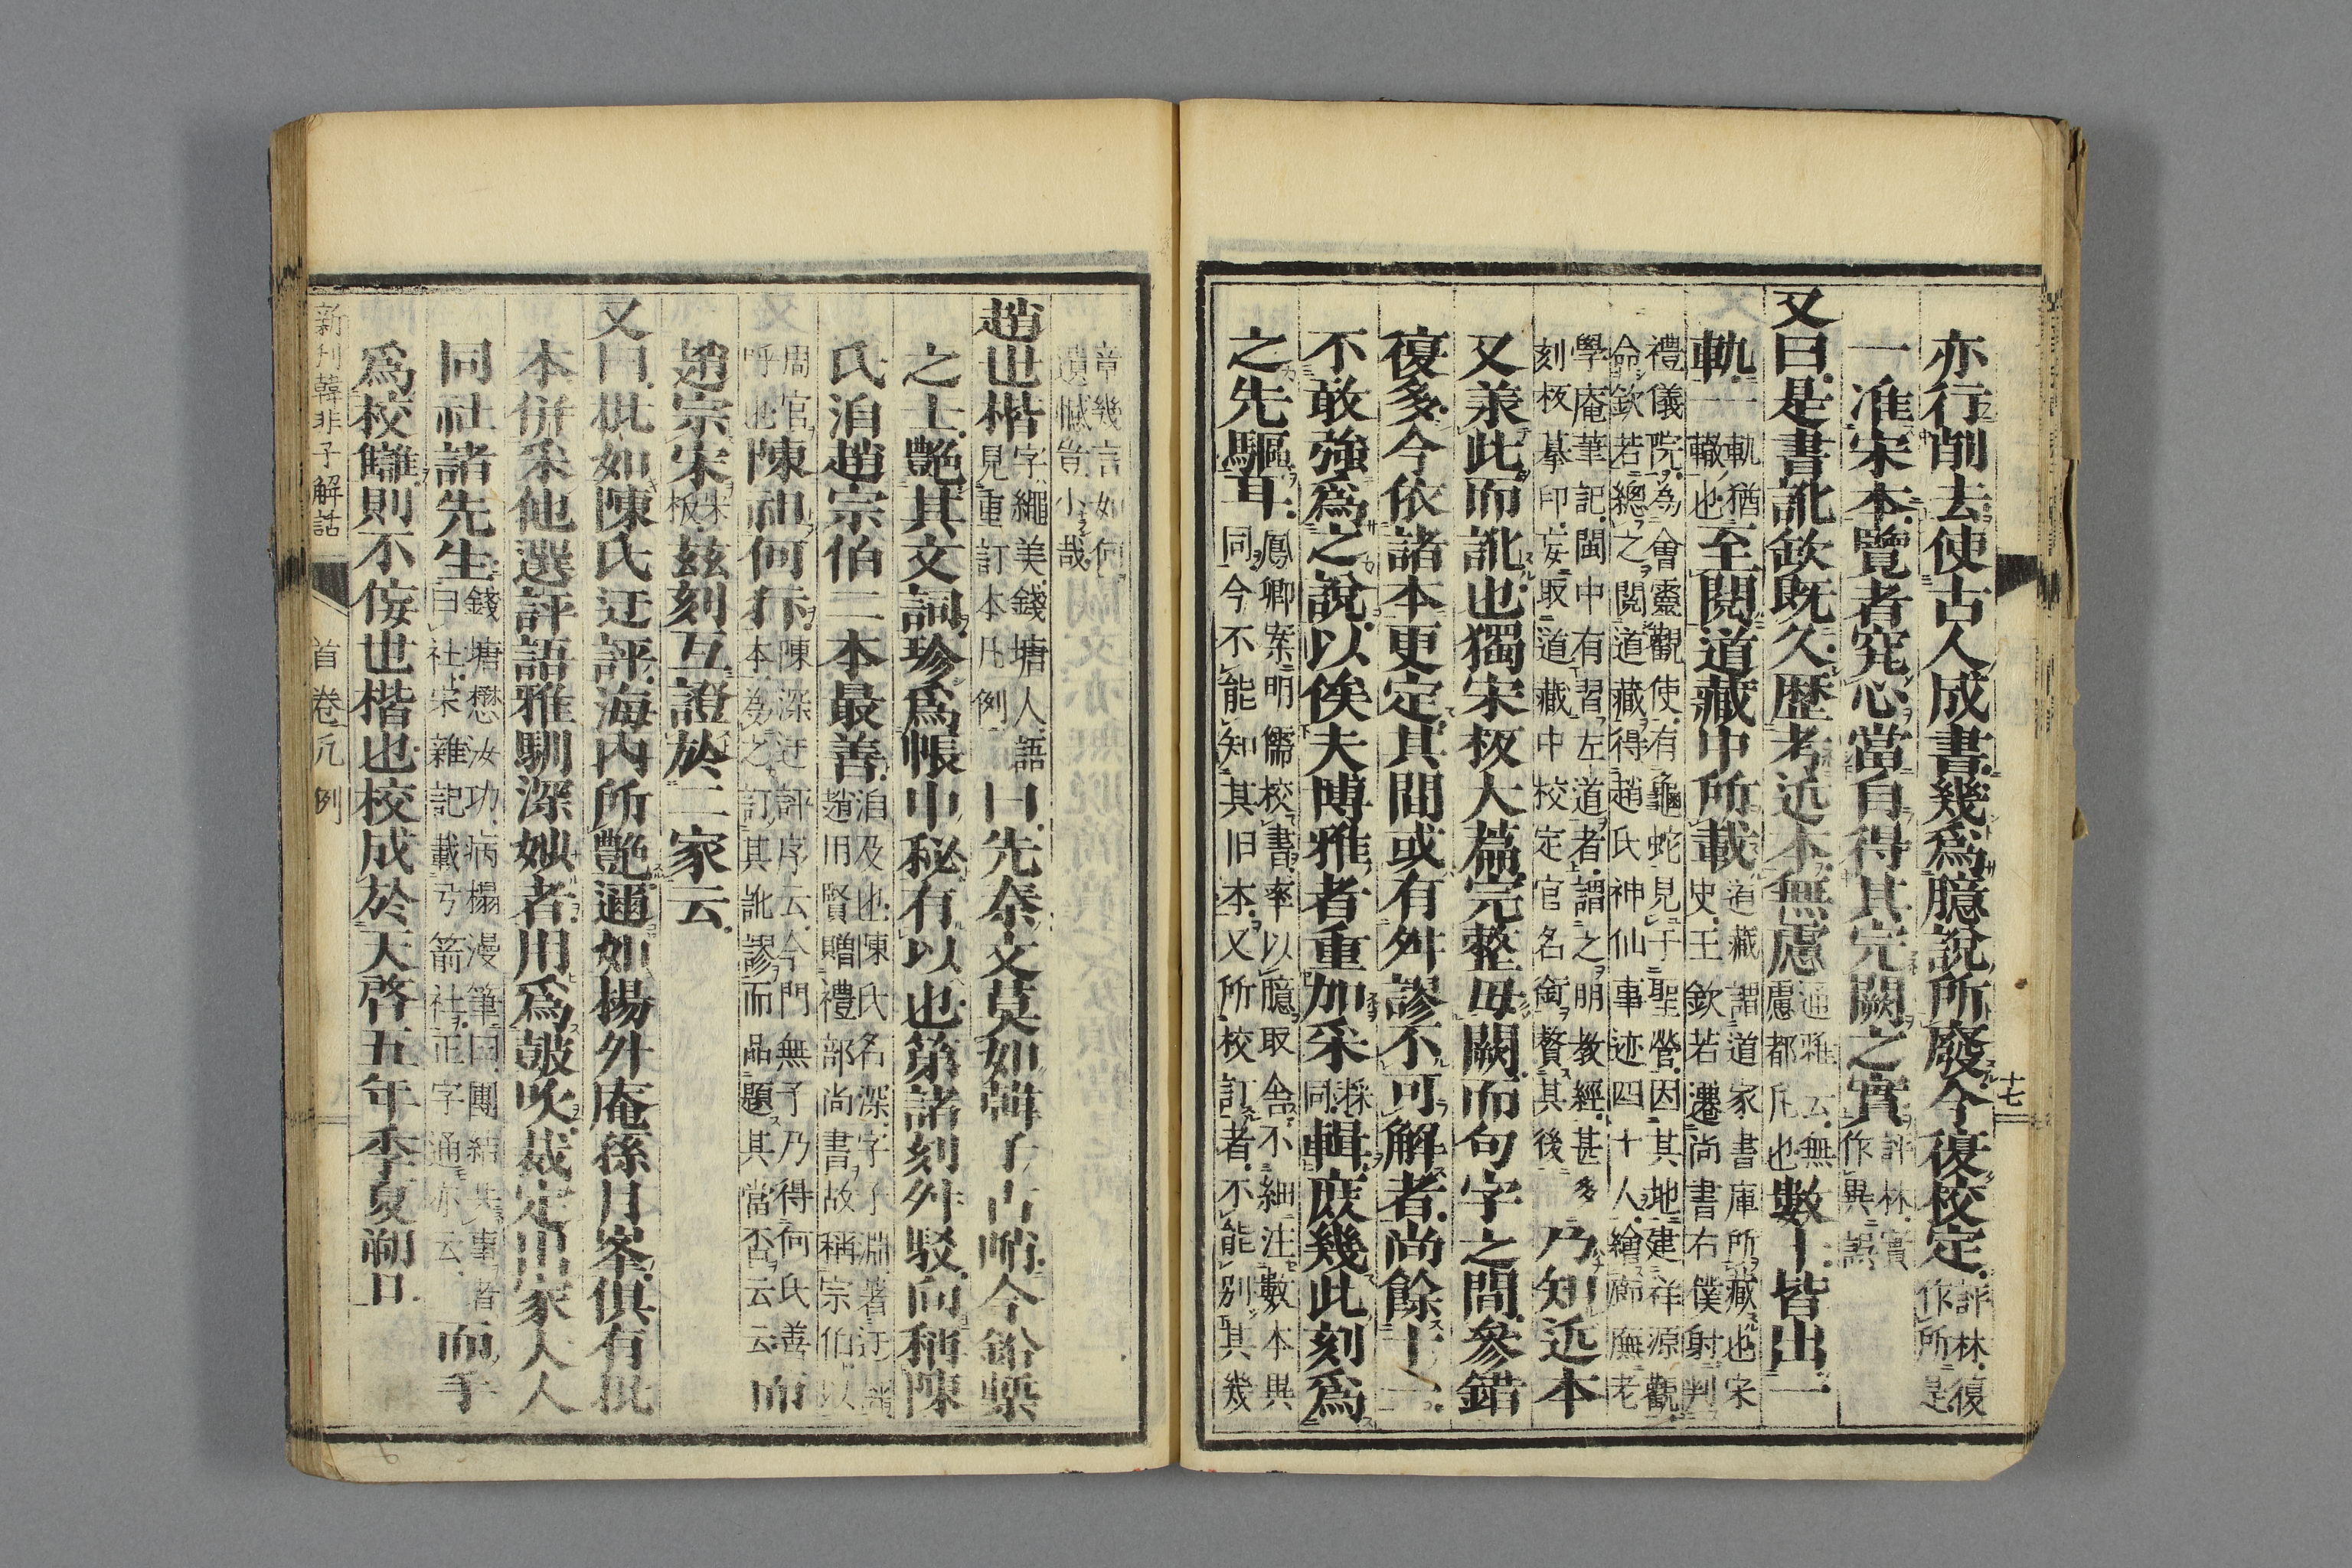 亦行削去使古人成書幾爲臆說所廢今復校定評林復作所是
一准宋本覽者究心當自得其完闕之實評林實作異誤
又曰是書訛欽既久歷考近本無慮通雅云無慮都凡也數十皆出一
軌一軌猶轍也至閱道藏中所載道藏謂道家書庫所藏也宋史王欽若遷尚書右僕射判
禮儀院爲會靈觀使有龜蛇見于聖營因其地建祥源觀命欽若總之閱道藏得趙氏神仙事迹四十人繪廊廡老
學庵筆記閩中有習左道者謂之明教經甚多刻板摹印妄取道藏中校定官名銜贅其後乃知近本
又兼此而訛也獨宋板大篇完整毋闕而句字之間參錯
復多今依諸本更定其間或有舛謬不可解者尚餘十一
不敢強爲之說以俟夫博雅者重加采採同輯庶幾此刻爲
之先驅耳鳳卿案明儒校書率以臆取舍不細注數本異同今不能知其旧本又所校訂者不能別其幾
章幾言如何遺憾豈小哉
趙世楷字繩美錢塘人語見重訂本凡例曰先秦文莫如韓子古峭今鉛槧
之士艷其文詞珍爲帳中秘有以也第諸刻舛駁向稱陳
氏洎趙宗伯二本最善洎及也陳氏名深字子淵著迂評趙用賢贈禮部尚書故稱宗伯以
周官呼也陳祖何行陳深迂評序云今門無子乃得何氏善本爲之訂其訛謬而品題其當否云云而
趙宗宋宋板茲刻互證於二家云
又曰批如陳氏迂評海內所艷邇如楊外庵孫月峯俱有批
本併采他選評語雅馴深妙者用爲鼓吹裁定出家人人
同社諸先生錢塘懋汝功病榻漫筆曰團結共事者曰社宋雜記載弓箭社正字通亦云而手
爲校讎則不佞也楷也校成於天啓五年季夏朔日
新刊韓非子解詁 首卷 凡例
十七